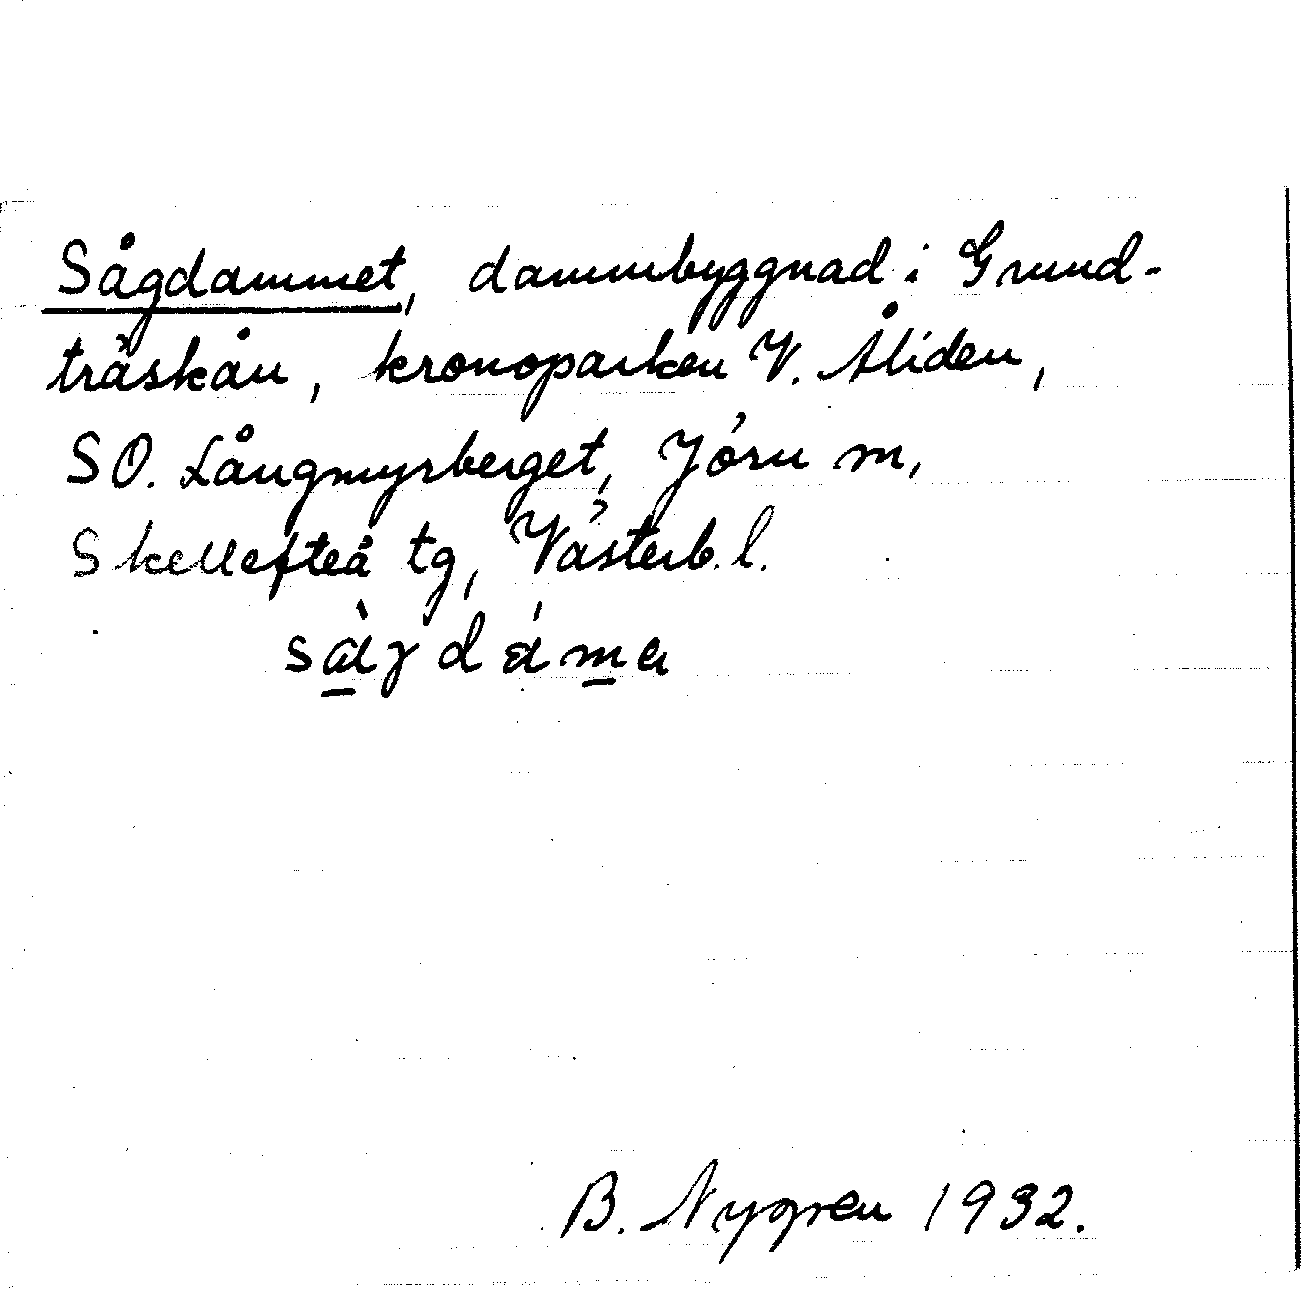 Sågdammet, dammbyggnad i Grund-
träskån, kronoparken V. Åliden,
SO. Långmyrberget, Jörn m,
Skellefteå tg, Västerb. l.
B. Nygren 1932.